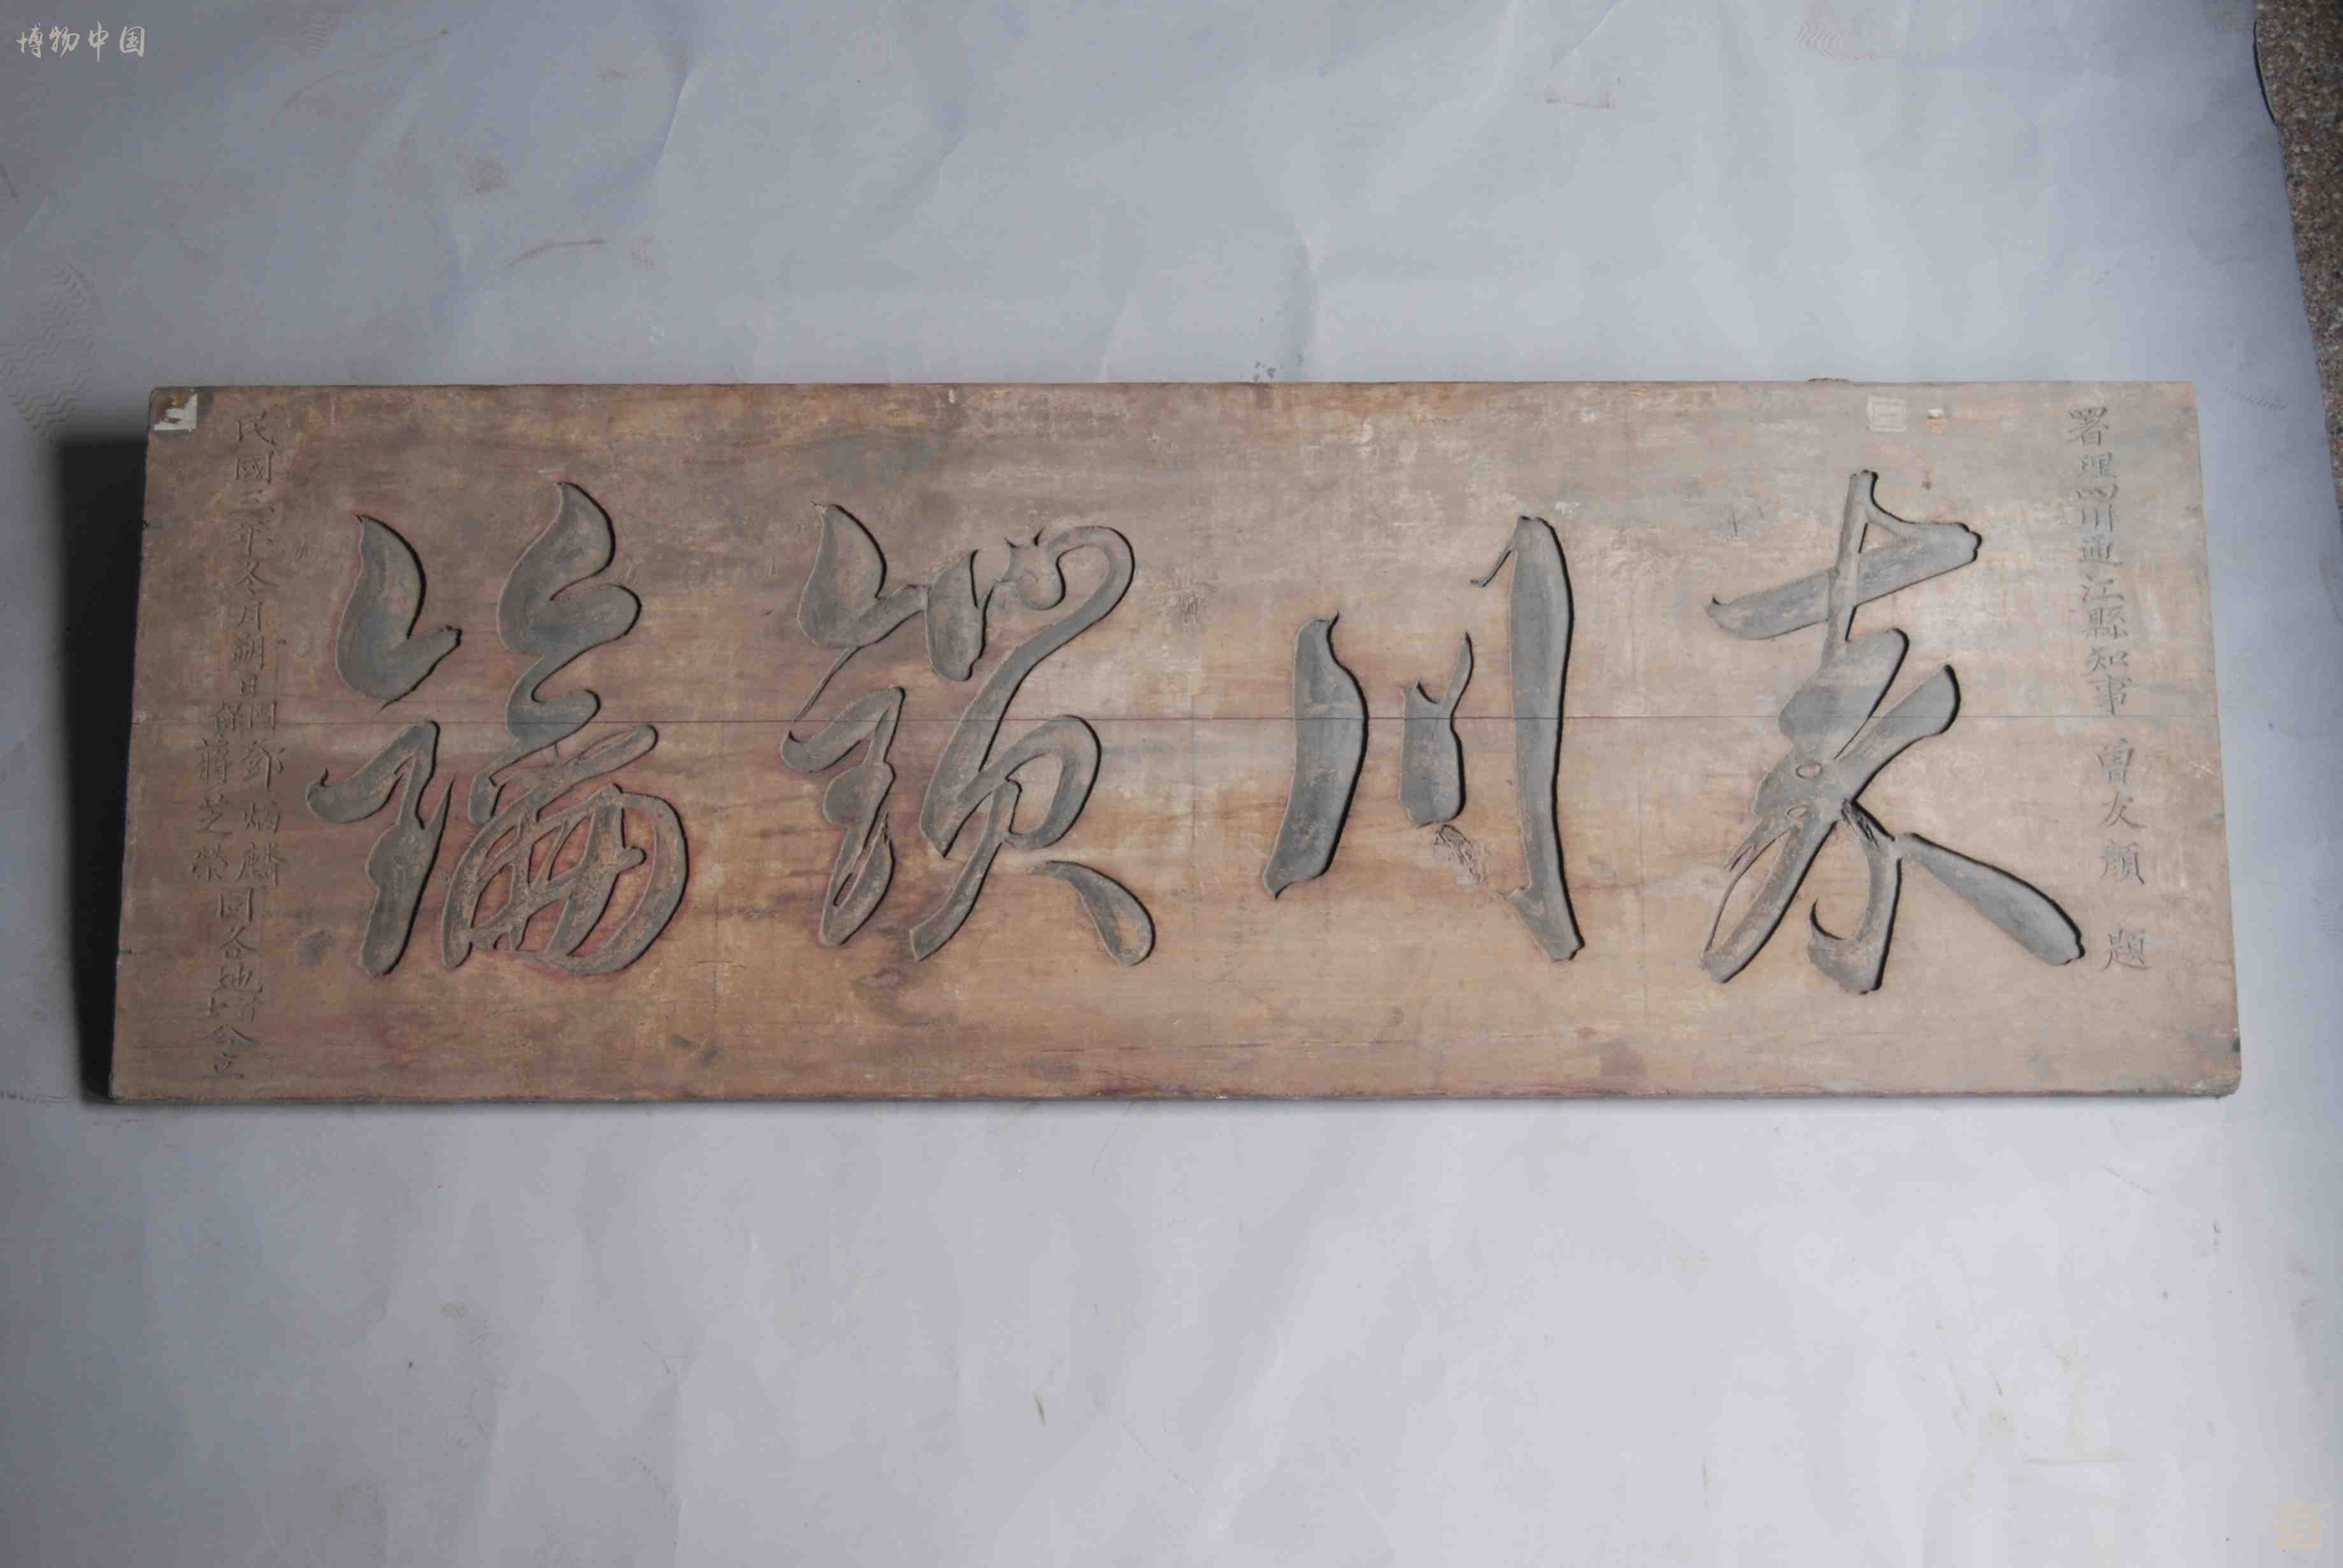 博物中国
署理四川通江縣知事 曾友顏 題
秦川鎖鑰
民國三年冬月朔日
團 鄧炳麟
保 蔣芝榮
同各地 公立